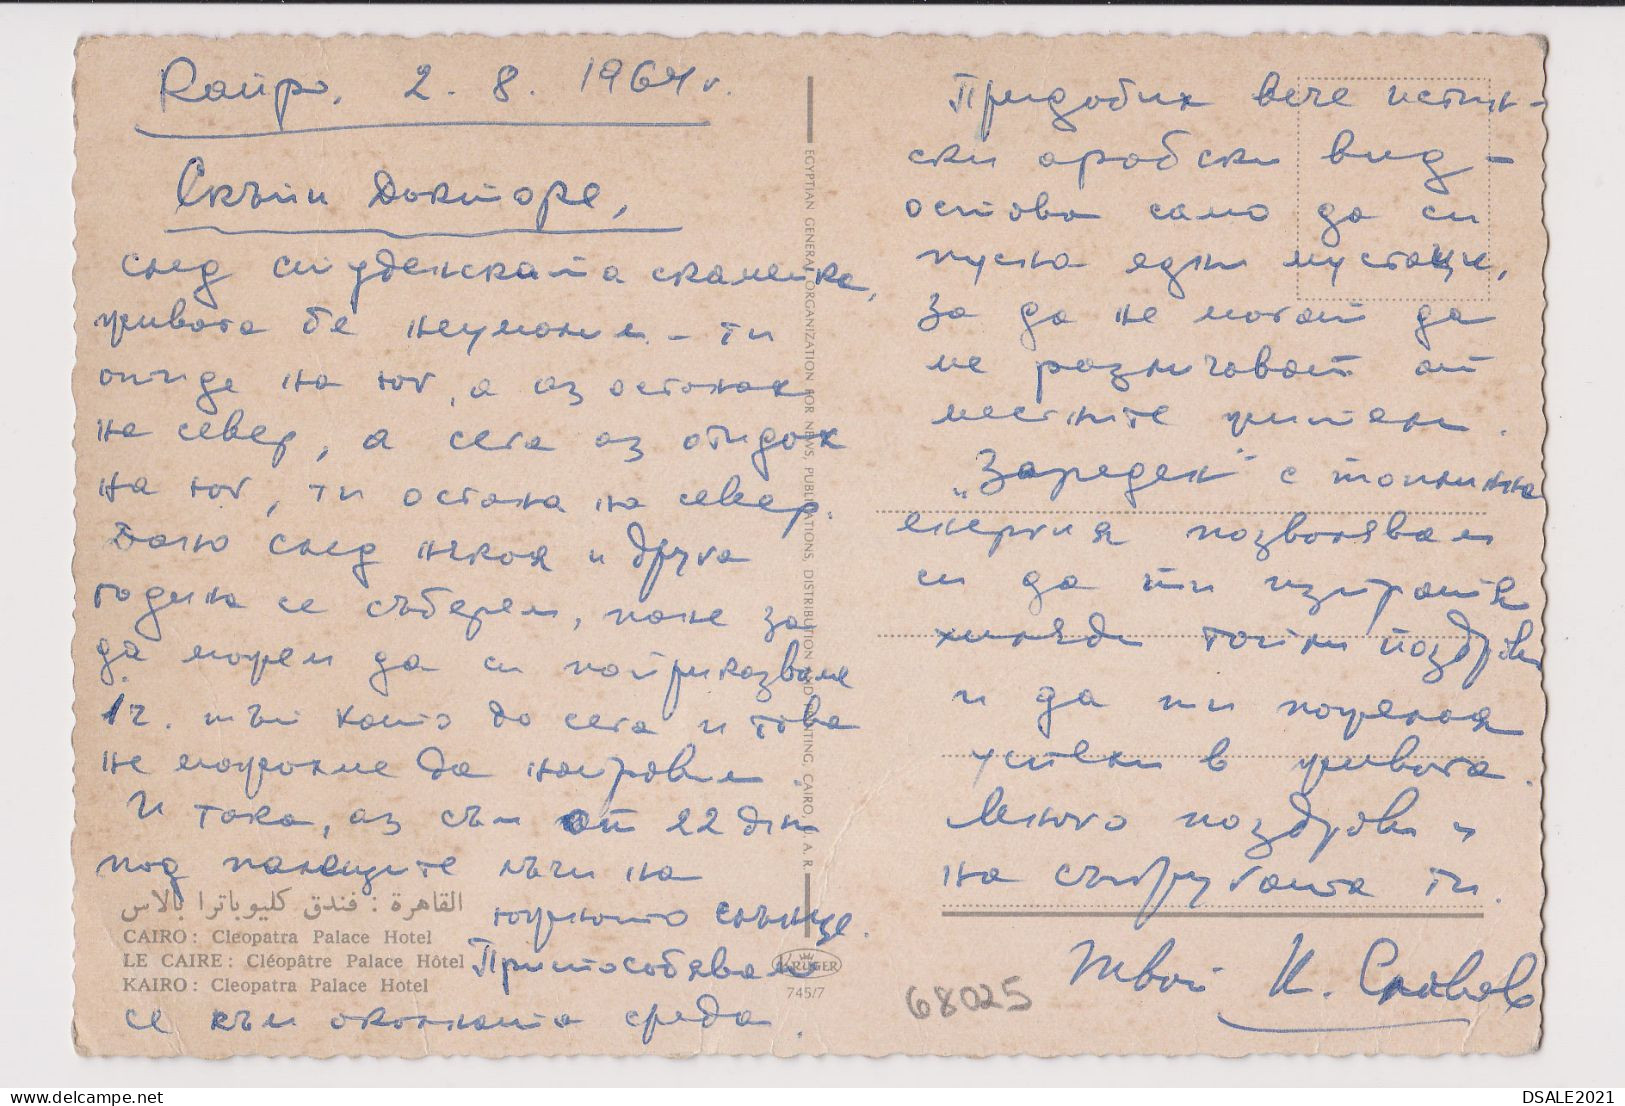 Кайро, 2. 8. 1964 г.
Скъпи Докторе,
след студенската скамейка,
живота бе неумолим – ти
отиде на юг, а аз останах
на север, а сега аз отидох
на юг, ти остана на север.
Дано след някоя и друга
година се съберем, поне за
да можем да си поприказваме
1 ч. тъй като до сега и това
не можахме да направим.
И така, аз съм от 22 дни
под палещите лъчи на
южното слънце.
Приспособявам
се към околната среда.
القاهرة : فندق كليوباترا بالاس
CAIRO: Cleopatra Palace Hotel
LE CAIRE: Cléopâtre Palace Hôtel
KAIRO: Cleopatra Palace Hotel
EGYPTIAN GENERAL ORGANIZATION FOR NEWS, PUBLICATIONS, DISTRIBUTION AND PRINTING, CAIRO, U. A. R.
KRÜGER
745/7
Придобих вече истин-
ски арабски вид –
остова само да си
пусна едни мустаци,
за да не могат да
ме различават от
местните жители.
„Зареден" с топлинна
енергия позволявам
си да ти изпратя
хиляди топли поздрави
и да ти пожелая
успехи в живота.
Много поздрави и
на съпругата ти.
Твой К. Славов
68025
DSALE2021